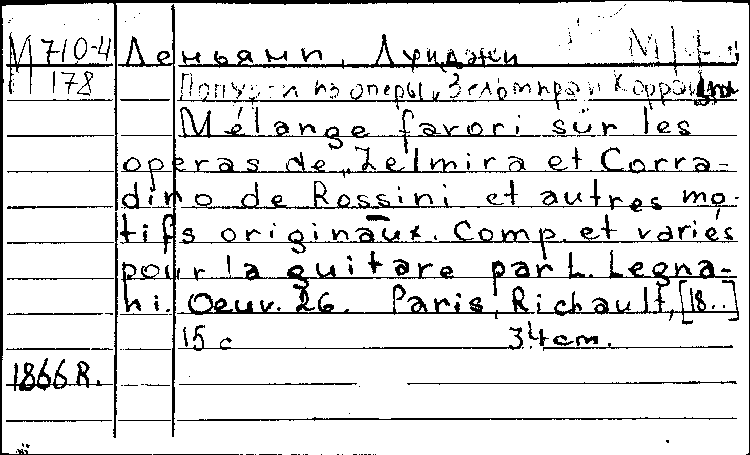 М 710-4 Леньяни, Луиджи
178 Попурри из оперы „Зельмира и Коррадин
Mélange favori sur les
operas de „Zelmira et Corra-
dino de Rossini et autres mo-
tifs originaux. Comp. et variés
pour la guitare par L. Legna-
ni. Oeuv. 26. Paris, Richault, [18..]
15 c 34 cm.
1866 R.